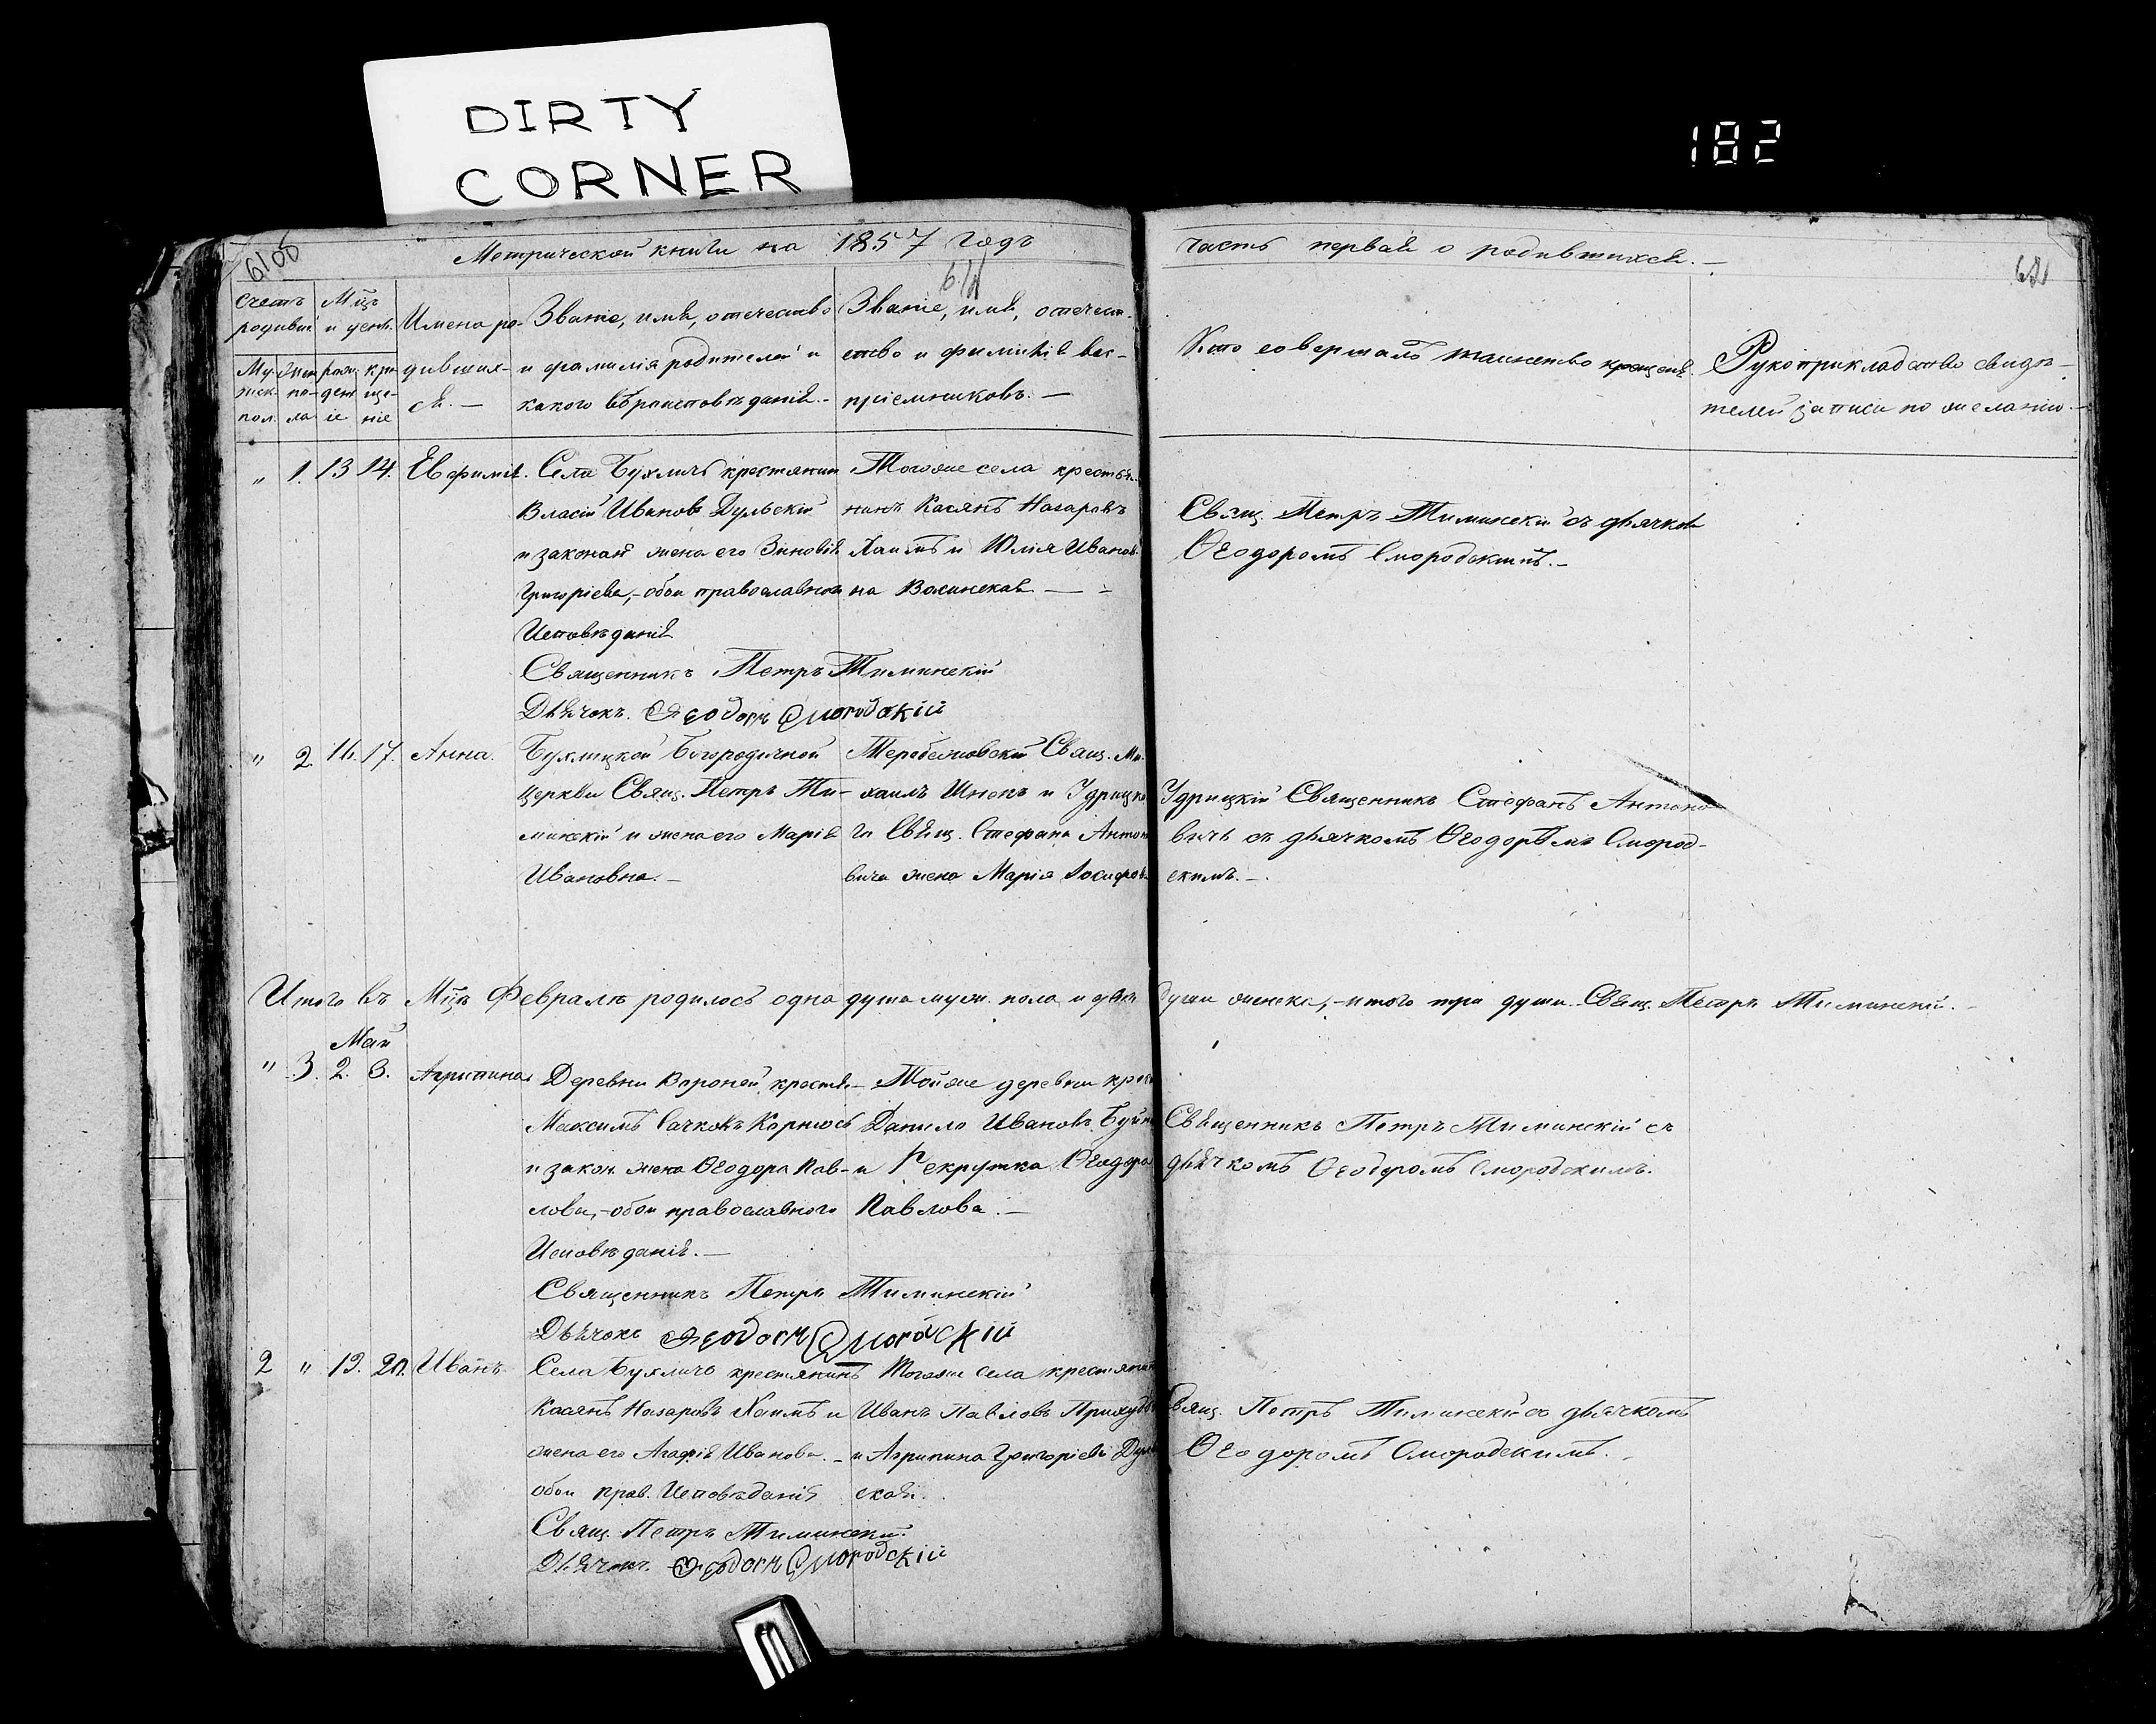 DIRTY
CORNER
182
Метрической книги на 1857 годъ
часть первая о родившихся. —
Счетъ родивш.
Мцъ и день.
Имена родившихся. —
Званіе, имя, отечество и фамилія родителей и какого вѣроисповѣданія. —
Званіе, имя, отечество и фамилія воспріемниковъ. —
Кто совершалъ таинство крещенія.
Рукоприкладство свидѣтелей записи по желанію. —
Мужеск. пол.
Жен. пола
рожденіе
крещеніе
" 1. 13 14. Евфимія.
Села Бухличъ крестянин
Власій Ивановъ Дульскій
и законая жена его Зиновія
Григоріева, – обои православнаго
Исповѣданія
Священникъ Петръ Тиминскій
Дьячокъ. Ѳеодоръ Смородскій
Тогоже села крестья-
нинъ Касянъ Назаровъ
Хаимъ и Юлія Иванов-
на Волинская —
Свящ. Петръ Тиминскій съ дьячком
Ѳеодоромъ Смородскимъ. –
" 2. 16. 17. Анна.
Бухлицкой Богородичной
церкви Свящ. Петръ Ти-
минскій и жена его Марія
Ивановна. –
Теребежовскій Свящ. Ми-
хаилъ Шнекъ и Удрицко
го Свящ. Стефана Антоно
вича жена Марія Іосифов
Удрицкій Священникъ Стефанъ Антоно
вичъ съ дьячкомъ Ѳеодоромъ Смород-
скимъ. –
Итого въ Мцѣ Февралѣ родилось одна душа муж. пола и двѣ души женска, – итого три души. Свящ. Петръ Тиминскій. –
Май
" 3. 2. 3. Агрипина
Деревни Вороней крестя-
Максимъ Сачковъ Корнюсь
и закон. жена Ѳеодора Пав-
лова, – обои православного
Исповѣданія. —
Священникъ Петръ Тиминскій
Дьячокъ Ѳеодоръ Смородскій
Тойже деревни крес
Данило Ивановъ
и Рекрутка Ѳеодора
Павлова. —
Священникъ Петръ Тиминскій съ
дьячкомъ Ѳеодоромъ Смородскимъ.
2 " 19. 20. Иванъ
Села Бухличъ крестянинъ
Касянъ Назаровъ Хаимъ и
жена его Агафія Иванова. –
обои прав. Исповѣданія
Свящ. Петръ Тиминскій.
Дьячокъ. Ѳеодоръ Смородскій
Тогоже села крестянин
Иванъ Павловъ
и Агрипина Григоріева Дуль
ская.
Свящ. Петръ Тиминскій съ дьячкомъ
Ѳеодоромъ Смородскимъ.